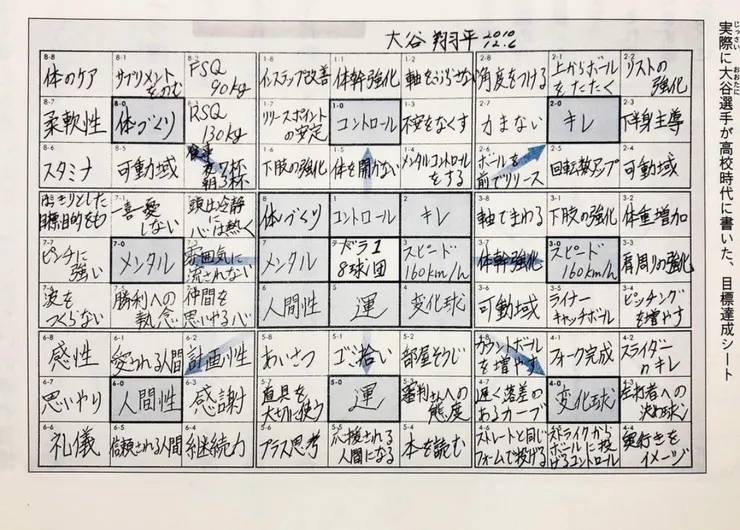 大谷 翔平 2010 12.6
実際に大谷選手が高校時代に書いた、目標達成シート
じっさい
おおたに
8-8 8-1 8-2 1-8 1-1 1-2 2-8 2-1 2-2
体のケア サプリメントをのむ FSQ 90kg インステップ改善 体幹強化 軸をぶらさない 角度をつける 上からボールをたたく リストの強化
8-7 8-0 8-3 1-7 1-0 1-3 2-7 2-0 2-3
柔軟性 体づくり RSQ 130kg リリースポイントの安定 コントロール 不安をなくす 力まない キレ 下半身主導
8-6 8-5 1-6 1-5 1-4 2-6 2-5 2-4
スタミナ 可動域 食事 夜7杯 朝3杯 下肢の強化 体を開かない メンタルコントロールをする ボールを前でリリース 回転数アップ 可動域
7-1 8 1 2 3-8 3-1 3-2
はっきりとした目標目的をもつ 一喜一憂しない 頭は冷静に心は熱く 体づくり コントロール キレ 軸でまわる 下肢の強化 体重増加
7-7 7-0 7-3 7 3 3-7 3-0 3-3
ピンチに強い メンタル 雰囲気に流されない メンタル ドラ1 8球団 スピード 160km/h 体幹強化 スピード 160km/h 肩周りの強化
7-6 7-5 7-4 6 5 4 3-6 3-5 3-4
波をつくらない 勝利への執念 仲間を思いやる心 人間性 運 変化球 可動域 ライナーキャッチボール ピッチングを増やす
6-8 6-1 6-2 5-8 5-1 5-2 4-8 4-1 4-2
感性 愛される人間 計画性 あいさつ ゴミ拾い 部屋そうじ カウントボールを増やす フォーク完成 スライダーのキレ
6-7 6-0 6-3 5-7 5-0 5-3 4-7 4-0 4-3
思いやり 人間性 感謝 道具を大切に使う 運 審判さんへの態度 遅く落差のあるカーブ 変化球 左打者への決め球
6-6 6-5 6-4 5-6 5-5 5-4 4-6 4-5 4-4
礼儀 信頼される人間 継続力 プラス思考 応援される人間になる 本を読む ストレートと同じフォームで投げる ストライクからボールに投げるコントロール 奥行きをイメージ